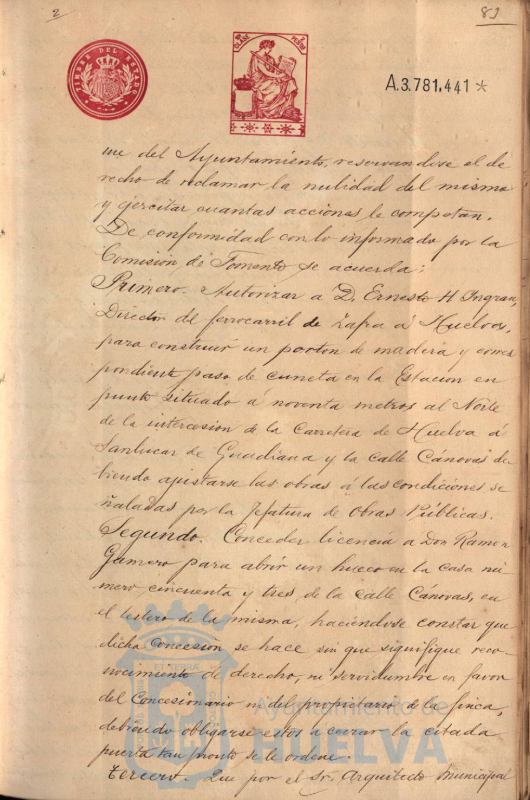 2
83
TIMBRE DEL ESTADO
A.3.781.441 *
me del Ayuntamiento, reservandose el de
recho de reclamar la nulidad del mismo
y ejercitar cuantas acciones le competan.
De conformidad con lo informado por la
Comisión de Fomento se acuerda:
Primero. Autorizar a D. Ernesto H Ingran,
Director del ferrocarril de Zafra á Huelva,
para construir un porton de madera y corres
pondiente paso de cuneta en la Estacion en
punto situado á noventa metros al Norte
de la intercesion de la Carretera de Huelva á
Sanlucar de Guadiana y la calle Cánovas de
biendo ajustarse las obras á las condiciones se
ñaladas por la Jefatura de Obras Públicas.
Segundo. Conceder licencia a Don Ramon
Gamero para abrir un hueco en la casa nú
mero cincuenta y tres de la calle Cánovas, en
el testero de la misma, haciendose constar que
dicha concesion se hace sin que signifique reco-
nocimiento de derecho, ni servidumbre en favor
del concesionario ni del propietario de la finca,
debiendo obligarse estos a cerrar la citada
puerta tan pronto se le ordene.
Tercero. Que por el Sr. Arquitecto Municipal
Ayuntamiento de
HUELVA